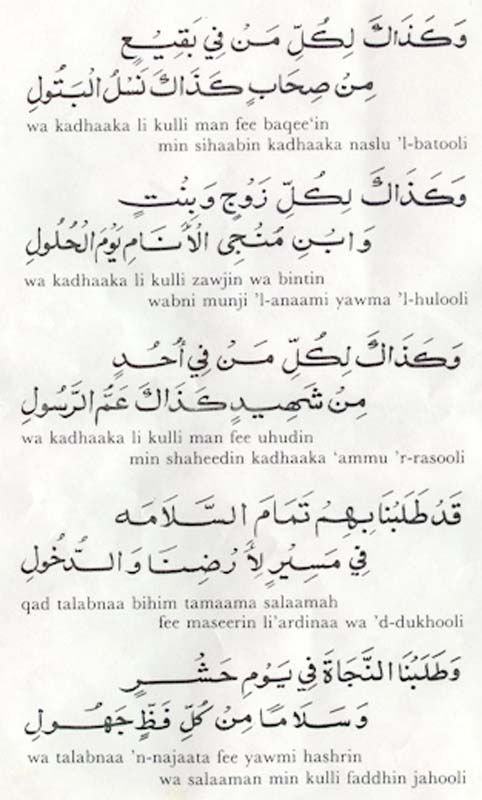 وَكَذَاكَ لِكُلِّ مَنْ فِي بَقِيْعٍ
مِنْ صِحَابٍ كَذَاكَ نَسْلُ الْبَتُولِ
wa kadhaaka li kulli man fee baqee‘in
min sihaabin kadhaaka naslu ’l-batooli
وَكَذَاكَ لِكُلِّ زَوْجٍ وَبِنْتٍ
وَابْنِ مُنْجِى الْأَنَامِ يَوْمَ الْحُلُولِ
wa kadhaaka li kulli zawjin wa bintin
wabni munji ’l-anaami yawma ’l-hulooli
وَكَذَاكَ لِكُلِّ مَنْ فِي أُحُدٍ
مِنْ شَهِيدٍ كَذَاكَ عَمُّ الرَّسُولِ
wa kadhaaka li kulli man fee uhudin
min shaheedin kadhaaka ‘ammu ’r-rasooli
قَدْ طَلَبْنَا بِهِمْ تَمَامَ السَّلَامَه
فِي مَسِيْرٍ لِأَرْضِنَا وَالدُّخُولِ
qad talabnaa bihim tamaama salaamah
fee maseerin li’ardinaa wa ’d-dukhooli
وَطَلَبْنَا النَّجَاةَ فِي يَوْمِ حَشْرٍ
وَسَلَامًا مِنْ كُلِّ فَظٍّ جَهُولِ
wa talabnaa ’n-najaata fee yawmi hashrin
wa salaaman min kulli faddhin jahooli